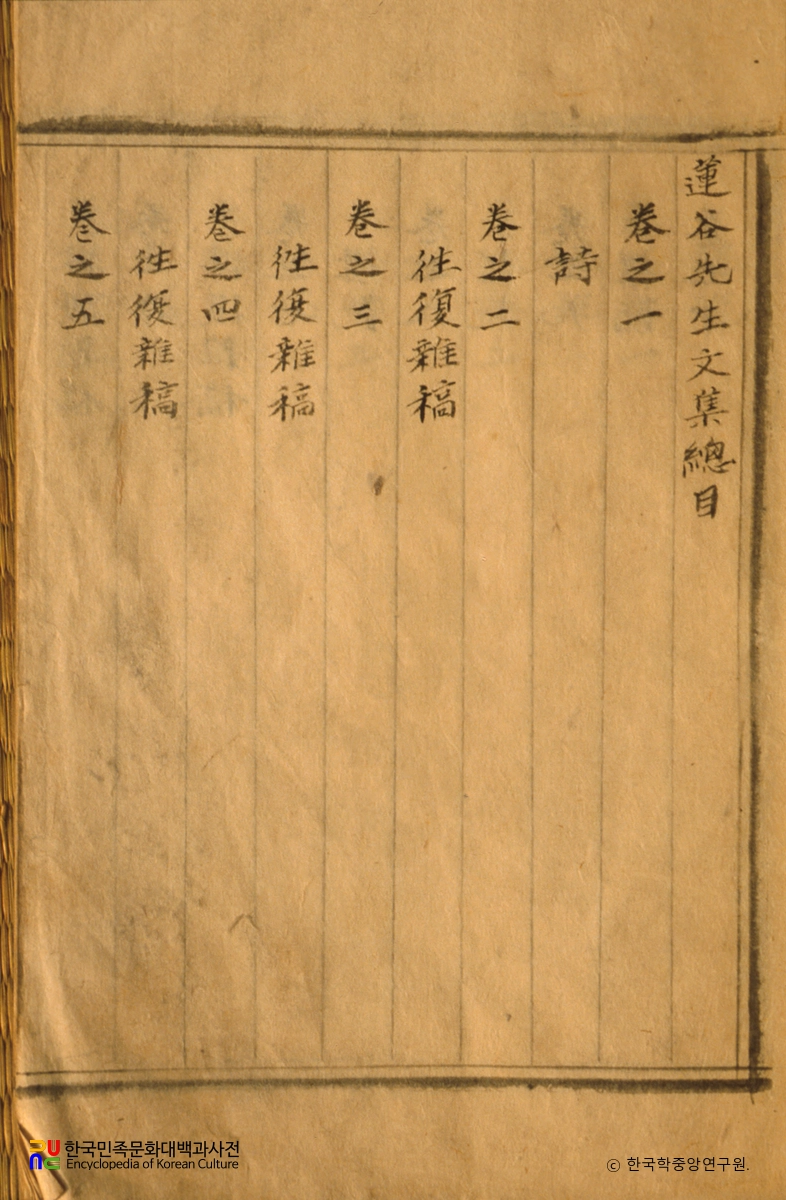 蓮谷先生文集總目
卷之一
詩
卷之二
往復雜稿
卷之三
往復雜稿
卷之四
往復雜稿
卷之五
한국민족문화대백과사전
Encyclopedia of Korean Culture
ⓒ 한국학중앙연구원.